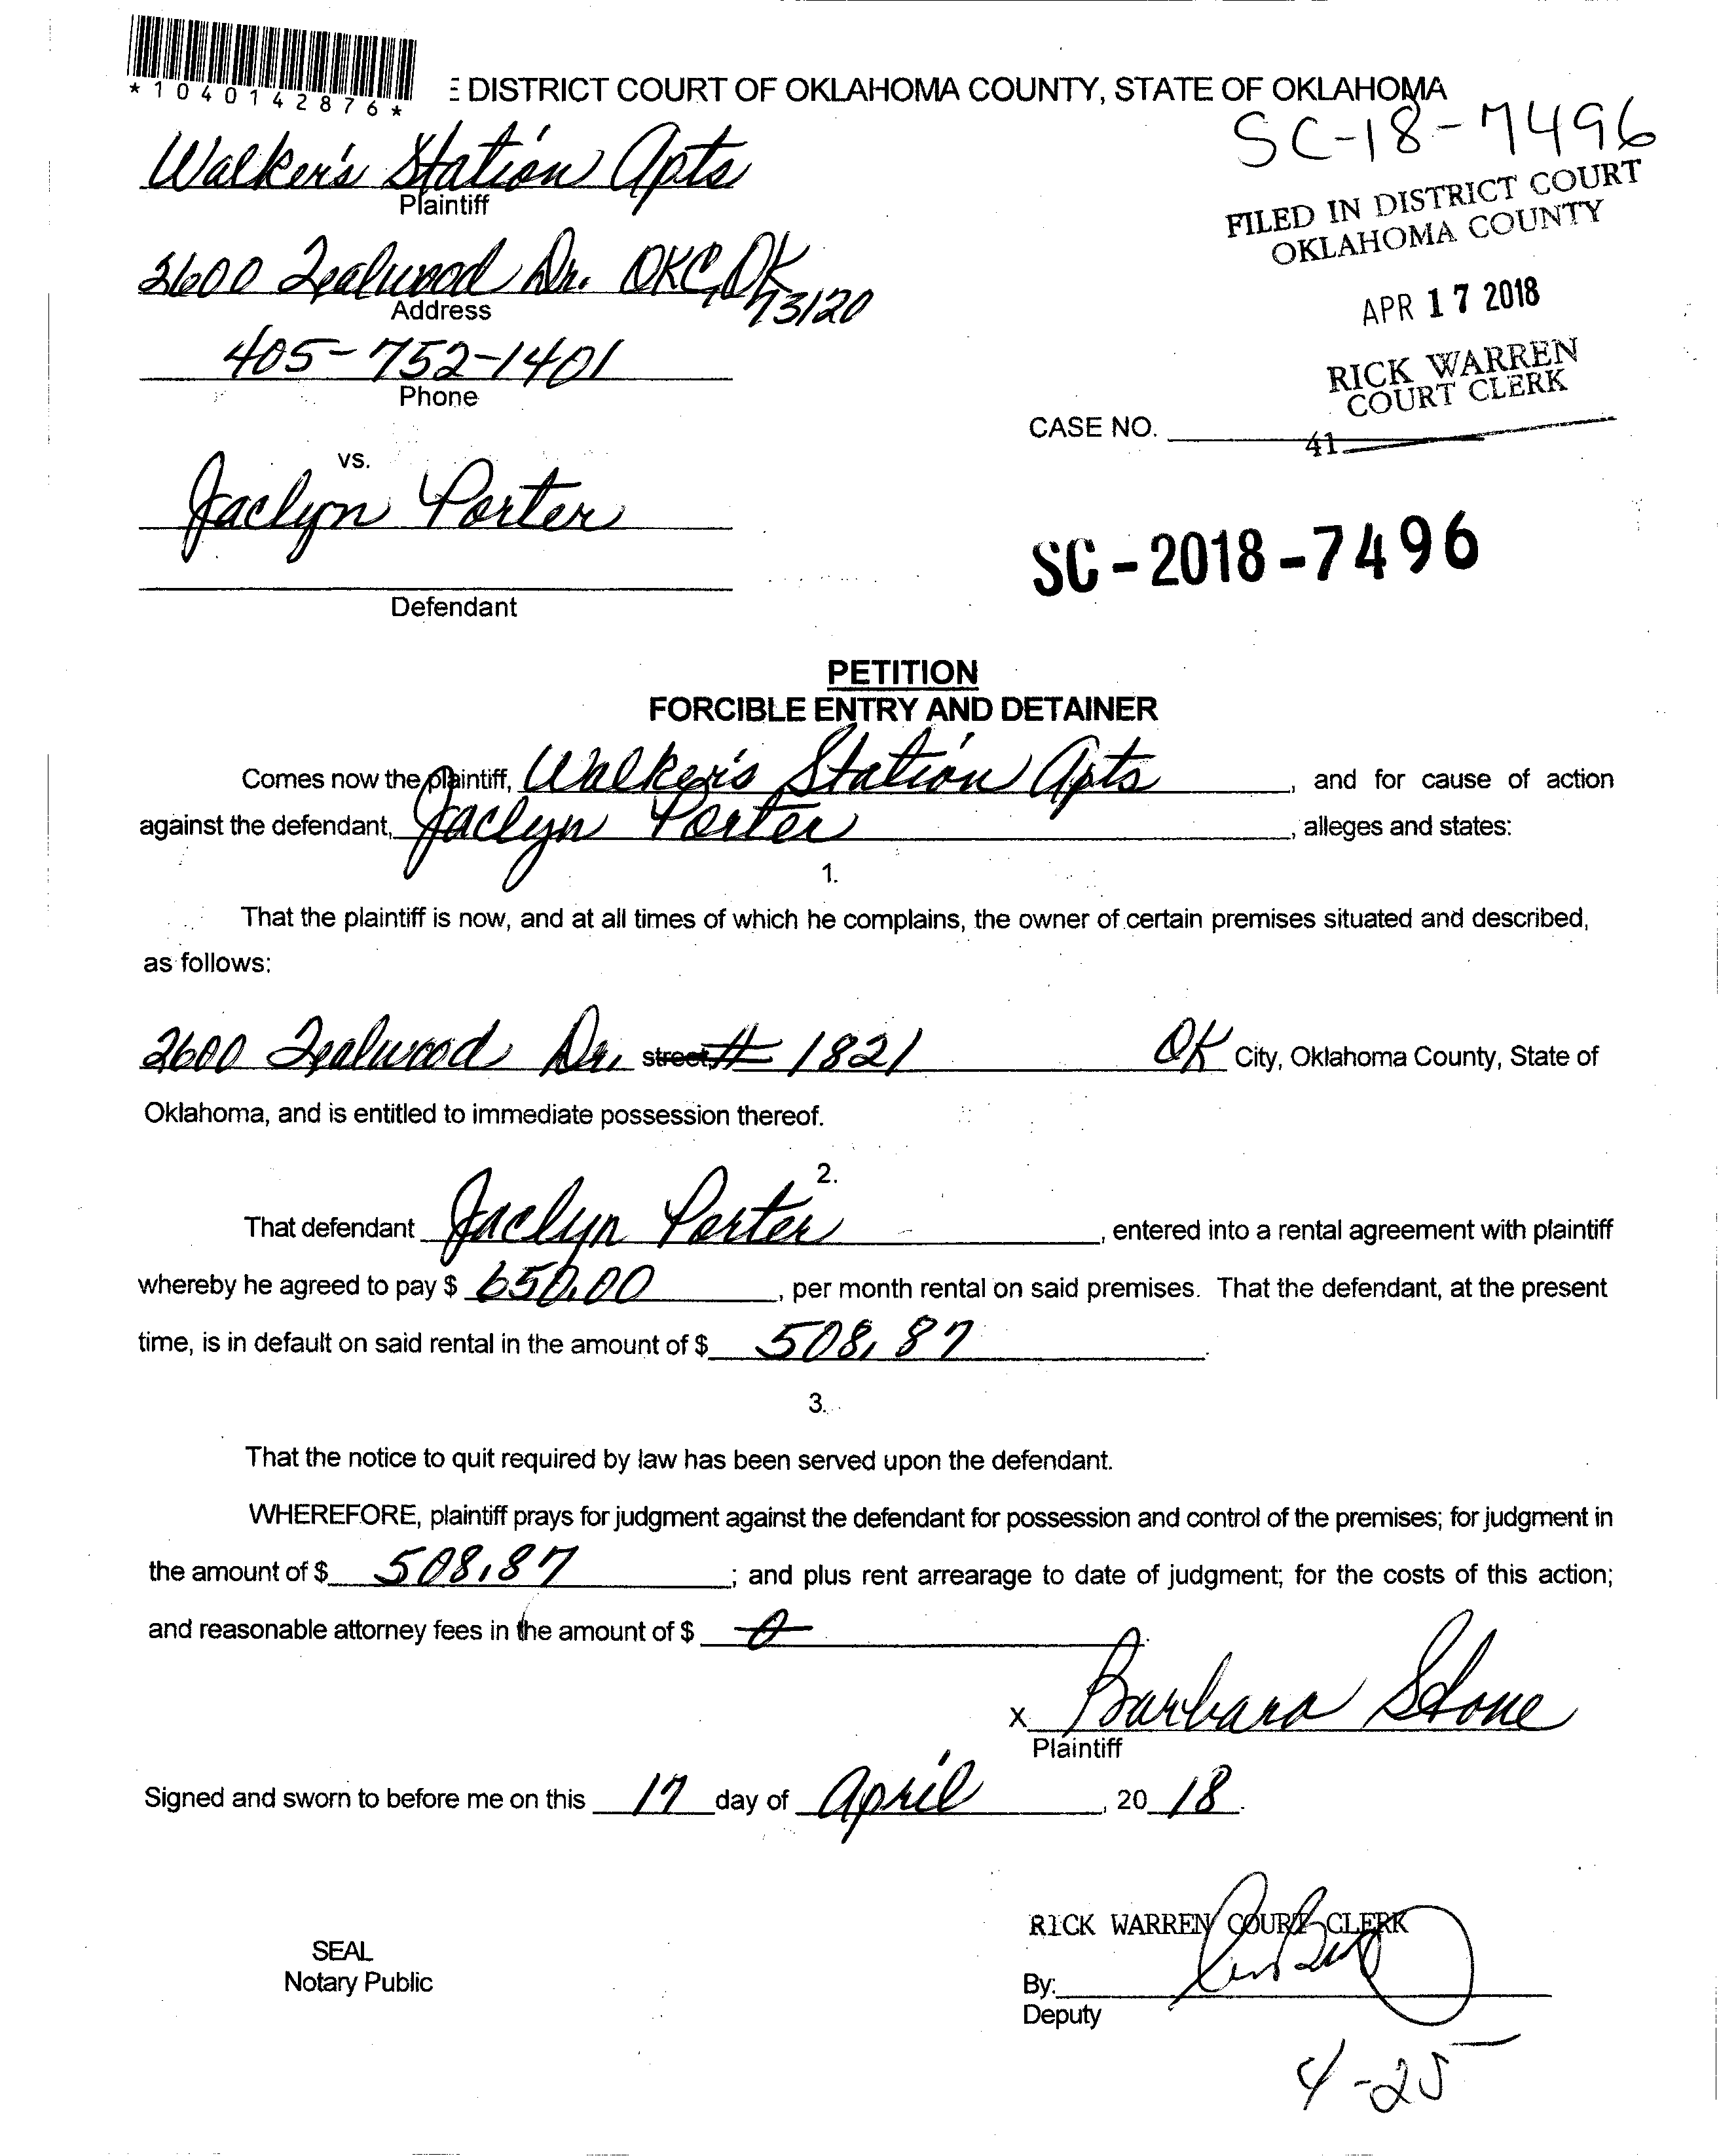 *1040142876*
DISTRICT COURT OF OKLAHOMA COUNTY, STATE OF OKLAHOMA
SC-18-7496
Walker's Station Apts
Plaintiff
FILED IN DISTRICT COURT
OKLAHOMA COUNTY
2600 Tealwood Dr. OKC, OK 73120
Address
APR 17 2018
405-752-1401
Phone
RICK WARREN
COURT CLERK
CASE NO.
41
vs.
Jaclyn Porter
Defendant
SC-2018-7496
PETITION
FORCIBLE ENTRY AND DETAINER
Comes now the plaintiff, Walker's Station Apts, and for cause of action
against the defendant, Jaclyn Porter, alleges and states:
1.
That the plaintiff is now, and at all times of which he complains, the owner of certain premises situated and described,
as follows:
2600 Tealwood Dr. street # 1821 OK City, Oklahoma County, State of
Oklahoma, and is entitled to immediate possession thereof.
2.
That defendant Jaclyn Porter, entered into a rental agreement with plaintiff
whereby he agreed to pay $ 650.00, per month rental on said premises. That the defendant, at the present
time, is in default on said rental in the amount of $ 508.87.
3.
That the notice to quit required by law has been served upon the defendant.
WHEREFORE, plaintiff prays for judgment against the defendant for possession and control of the premises; for judgment in
the amount of $ 508.87; and plus rent arrearage to date of judgment; for the costs of this action;
and reasonable attorney fees in the amount of $ 0
x Barbara Stone
Plaintiff
Signed and sworn to before me on this 17 day of April, 20 18.
RICK WARREN COURT CLERK
SEAL
Notary Public
By:
Deputy
4-25